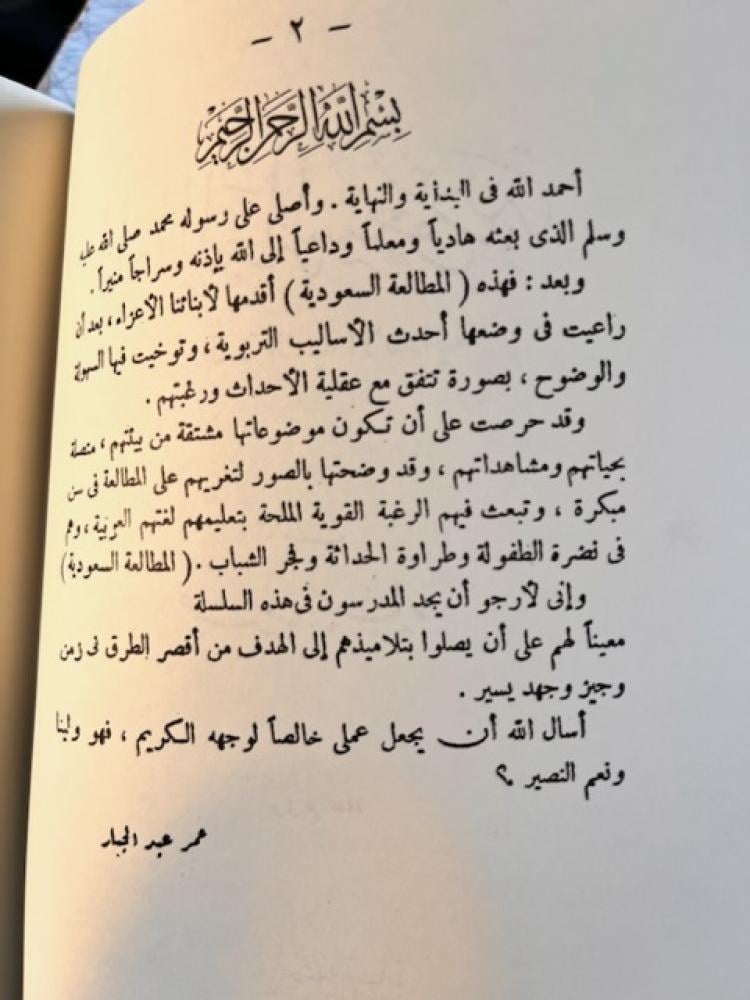 - ٢ -
بسم الله الرحمن الرحيم
أحمد الله فى البداية والنهاية . وأصلى على رسوله محمد صلى الله عليه
وسلم الذى بعثه هادياً ومعلماً وداعياً إلى الله بإذنه وسراجاً منيراً .
وبعد : فهذه ( المطالعة السعودية ) أقدمها لأبنائنا الأعزاء ، بعد أن
راعيت فى وضعها أحدث الأساليب التربوية ، وتوخيت فيها السهولة
والوضوح ، بصورة تتفق مع عقلية الأحداث ورغبتهم .
وقد حرصت على أن تكون موضوعاتها مشتقة من بيئتهم ، متصلة
بحياتهم ومشاهداتهم ، وقد وضحتها بالصور لتغريهم على المطالعة فى سن
مبكرة ، وتبعث فيهم الرغبة القوية الملحة بتعليمهم لغتهم العربية ، وهم
فى نضرة الطفولة وطراوة الحداثة وفجر الشباب . ( المطالعة السعودية )
وإنى لأرجو أن يجد المدرسون فى هذه السلسلة
معيناً لهم على أن يصلوا بتلاميذهم إلى الهدف من أقصر الطرق فى زمن
وجيز وجهد يسير .
أسال الله أن يجعل عملى خالصاً لوجهه الكريم ، فهو ولينا
ونعم النصير ؟
عمر عبد الجبار